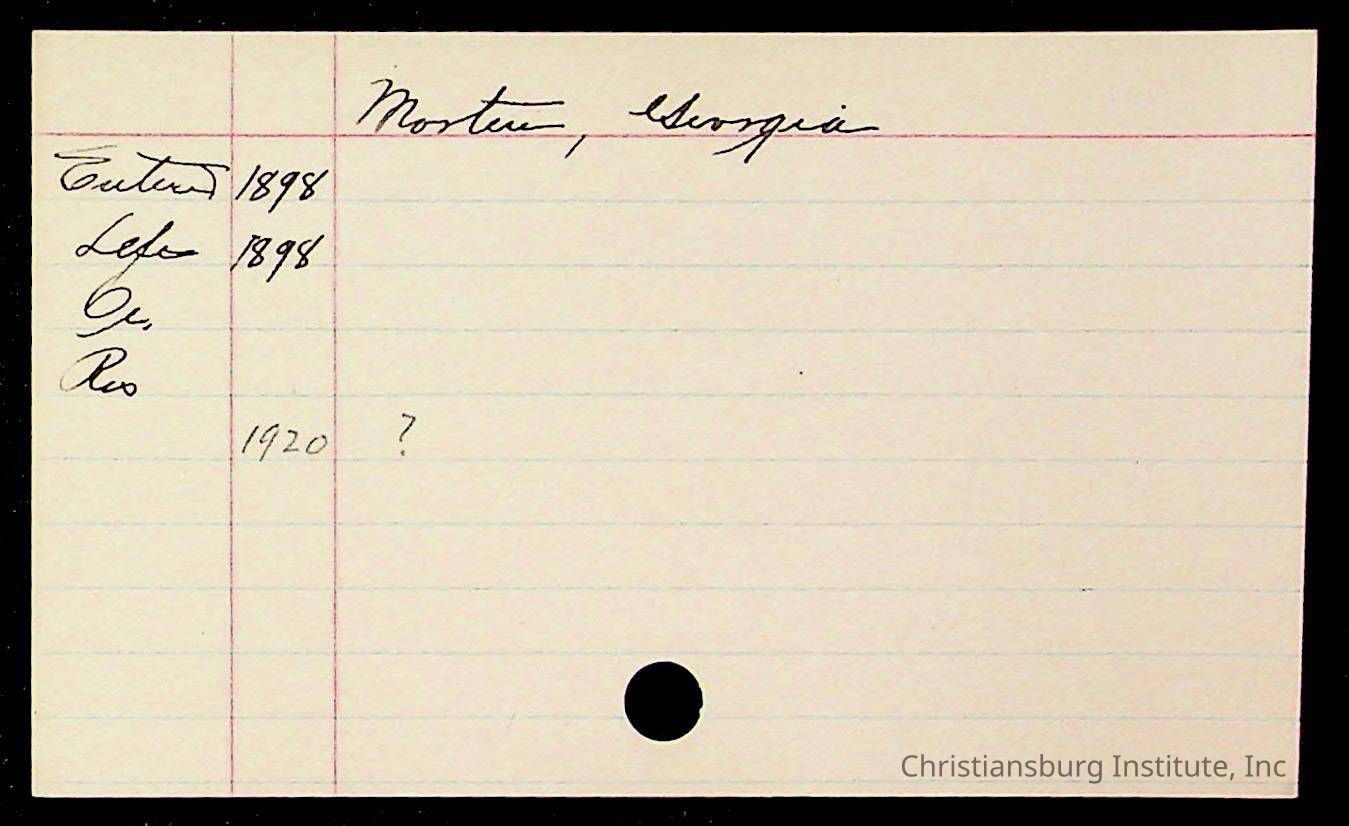 Morten, Georgia
Entered 1898
Left 1898
Oc.
Res
1920 ?
Christiansburg Institute, Inc